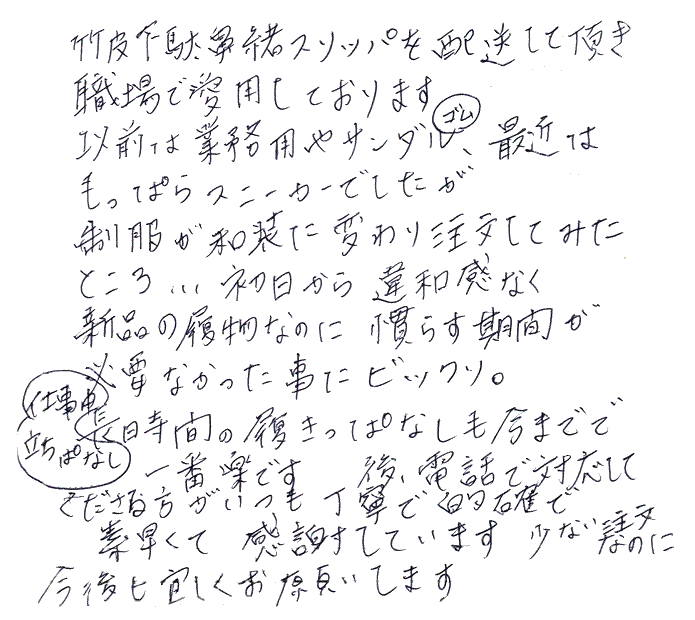 竹皮下駄鼻緒スリッパを配送して頂き
職場で愛用しております
以前は業務用やサンダル、最近は
ゴム
もっぱらスニーカーでしたが
制服が和装に変わり注文してみた
ところ… 初日から違和感なく
新品の履物なのに慣らす期間が
必要なかった事にビックリ。
仕事中
立ちぱなし
長時間の履きっぱなしも今までで
一番楽です 後、電話で対応して
くださる方がいつも丁寧で的確で
素早くて感謝しています 少ない注文
なのに
今後も宜しくお願いします